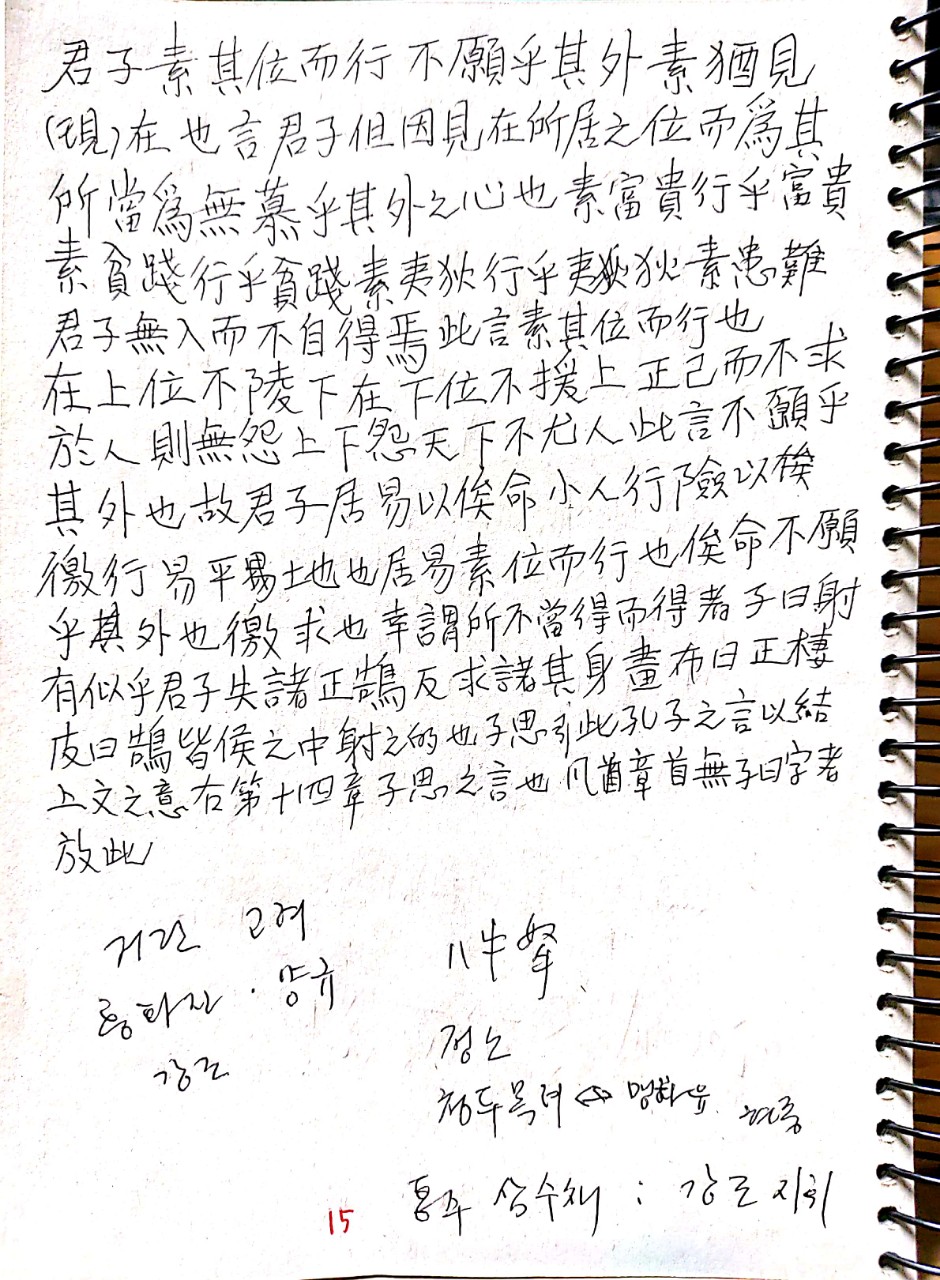 君子素其位而行 不願乎其外 素猶見
(現)在也言君子但因見在所居之位而爲其
所當爲無慕乎其外之心也 素富貴行乎富貴
素貧踐行乎貧踐素夷狄行乎夷狄狄素患難
君子無入而不自得焉 此言素其位而行也
在上位不陵下在下位不援上 正己而不求
於人 則無怨上下怨天下不尤人 此言不願乎
其外也故君子居易以俟命 小人行險以俟
徼行 易平易土地也居易素位而行也 俟命不願
乎其外也徼求也幸謂所不當得而得者 子曰射
有似乎君子失諸正鵠反求諸其身 畫布曰正棲
皮曰鵠皆侯之中射之的也子思引此孔子之言以結
上文之意 右第十四章子思之言也 凡首章首無子曰字者
放此
거란 고려
통화진 · 양규
강조
八牛弩
정노
현종
통주 삼수채 : 강조 지휘
15